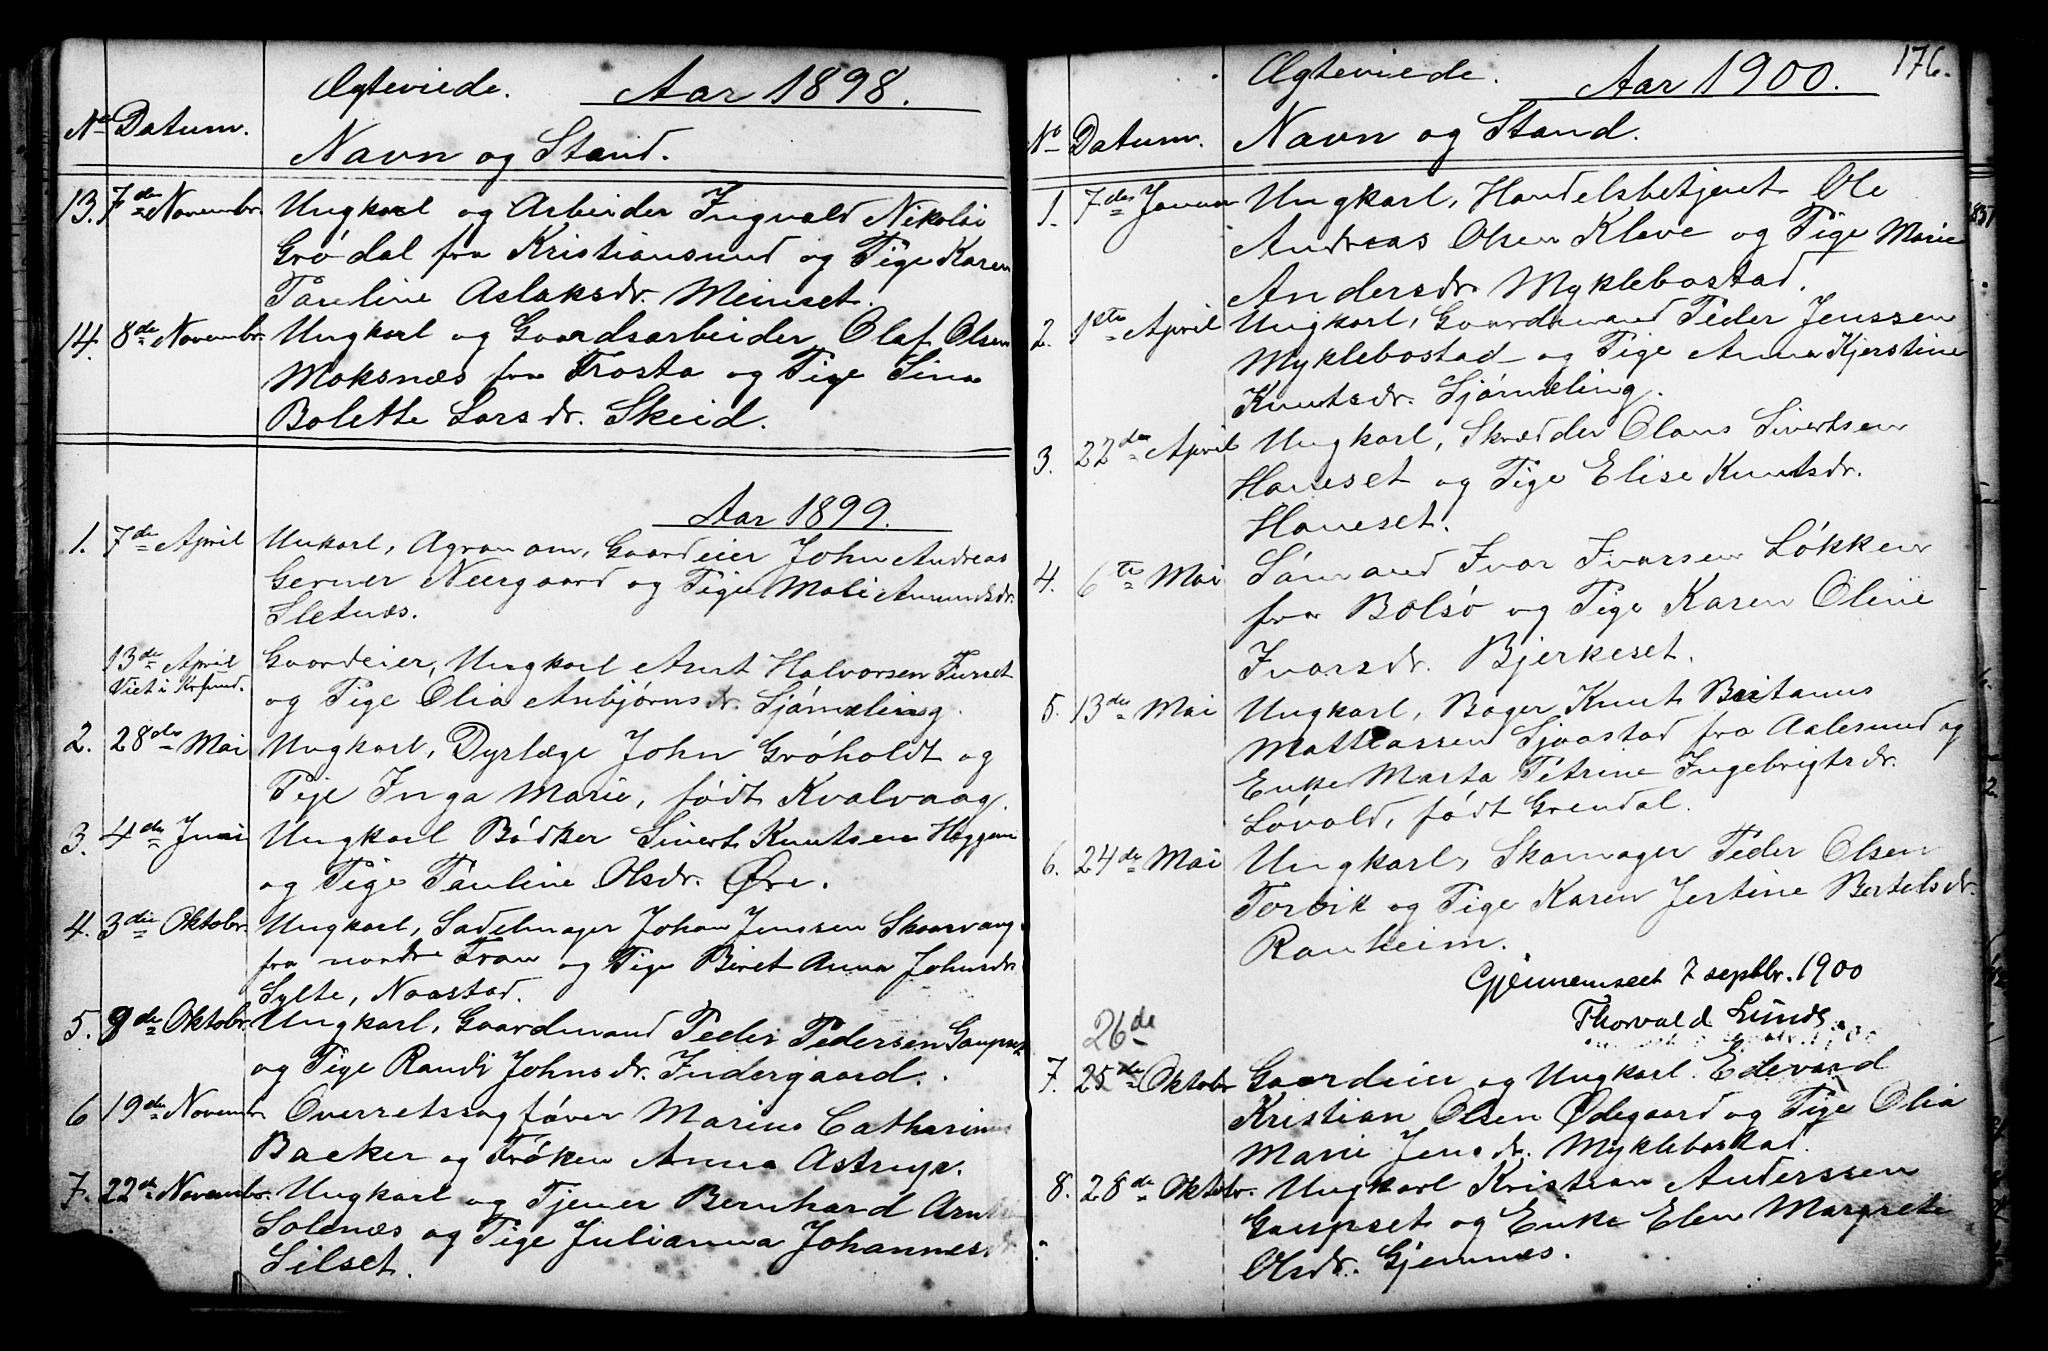 Ægteviede. Aar 1898.
No Datum. Navn og Stand.
13. 7de Novembr. Ungkarl og Arbeider Ingvald Nikolai
Grødal fra Kristiansund og Pige Karen
Pauline Aslaksdr. Meinset.
14. 8de Novembr. Ungkarl og Gaardsarbeider Olaf Olsen
Moksnæs fra Frosta og Pige Sina
Bolette Larsdr. Skeid.
Aar 1899.
1. 7de April Unkarl, Agronom, Gaardeier John Andreas
Gerner Neergaard og Pige Mali Amundsdr.
Sletnæs.
13de April Gaardeier, Ungkarl Arnt Halvorsen Furset
Viet i Krsund. og Pige Olia Anbjørnsdr. Sjømæling.
2. 28de Mai Ungkarl, Dyrlæge John Grøholdt og
Pige Inga Marie, født Kvalvaag.
3. 4de Juni Ungkarl Bødker Sivert Knutsen Heggem
og Pige Pauline Olsdr. Øre.
4. 3die Oktobr. Ungkarl, Sadelmager Johan Jenssen Skaarvang
fra nordre Fron og Pige Beret Anna Johnsdr.
Sylte, Naastad.
5. 9de Oktobr. Ungkarl, Gaardmand Peder Pedersen Gaupset
og Pige Randi Johnsdr. Indergaard.
6 19de Novembr. Overretssagfører Marius Catharinus
Backer og Frøken Anna Astrup.
7. 22de Novembr. Ungkarl og Tjener Bernhard
Solenæs og Pige Julianna Johannesdr.
Silset.
176.
Ægteviede. Aar 1900.
No Datum. Navn og Stand.
1. 7de Januar Ungkarl, Handelsbetjent Ole
Andreas Olsen Kleve og Pige Marie
Andersdr. Myklebostad.
2. 1ste April Ungkarl, Gaardmand Peder Jenssen
Myklebostad og Pige Anna Kjerstine
Knutsdr. Sjømæling.
3. 22de April Ungkarl, Skrædder Olaus Sivertsen
Haneset og Pige Elise Knutsdr.
Haneset.
4. 6te Mai Sømand Ivar Ivarsen Løkken
fra Bolsø og Pige Karen Oline
Ivarsdr. Bjerkeset.
5. 13de Mai Ungkarl, Bager Knut Britanus
Mattiassen Sjaastad fra Aalesund og
Enke Marta Petrine Ingebrigtsdr.
Løvold, født Grendal.
6. 24de Mai Ungkarl, Skomager Peder Olsen
Torvik og Pige Karen Jertine Bertelsdr.
Ranheim.
Gjennemseet 7 septbr. 1900
Thorvald Lunde
26de
7. 25de Oktobr Gaardeier og Ungkarl Edevard
Kristian Olsen Ødegaard og Pige Olia
Marie Jensdr. Myklebostad.
8. 28de Oktobr. Ungkarl Kristian Anderssen
Gaupset og Enke Elen Margrete
Olsdr. Gjemnæs.